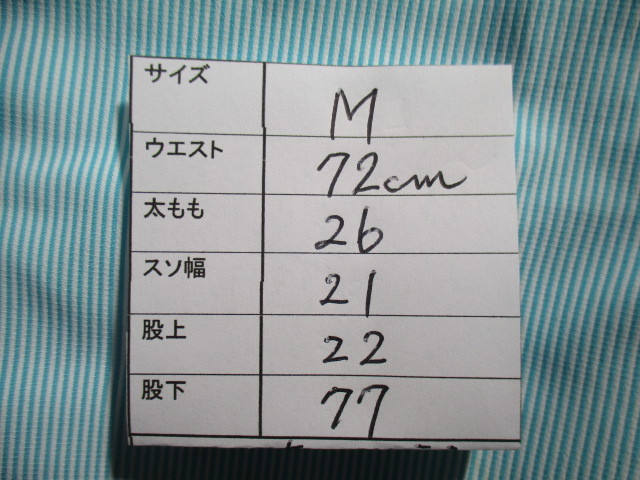 サイズ M
ウエスト 72cm
太もも 26
スソ幅 21
股上 22
股下 77